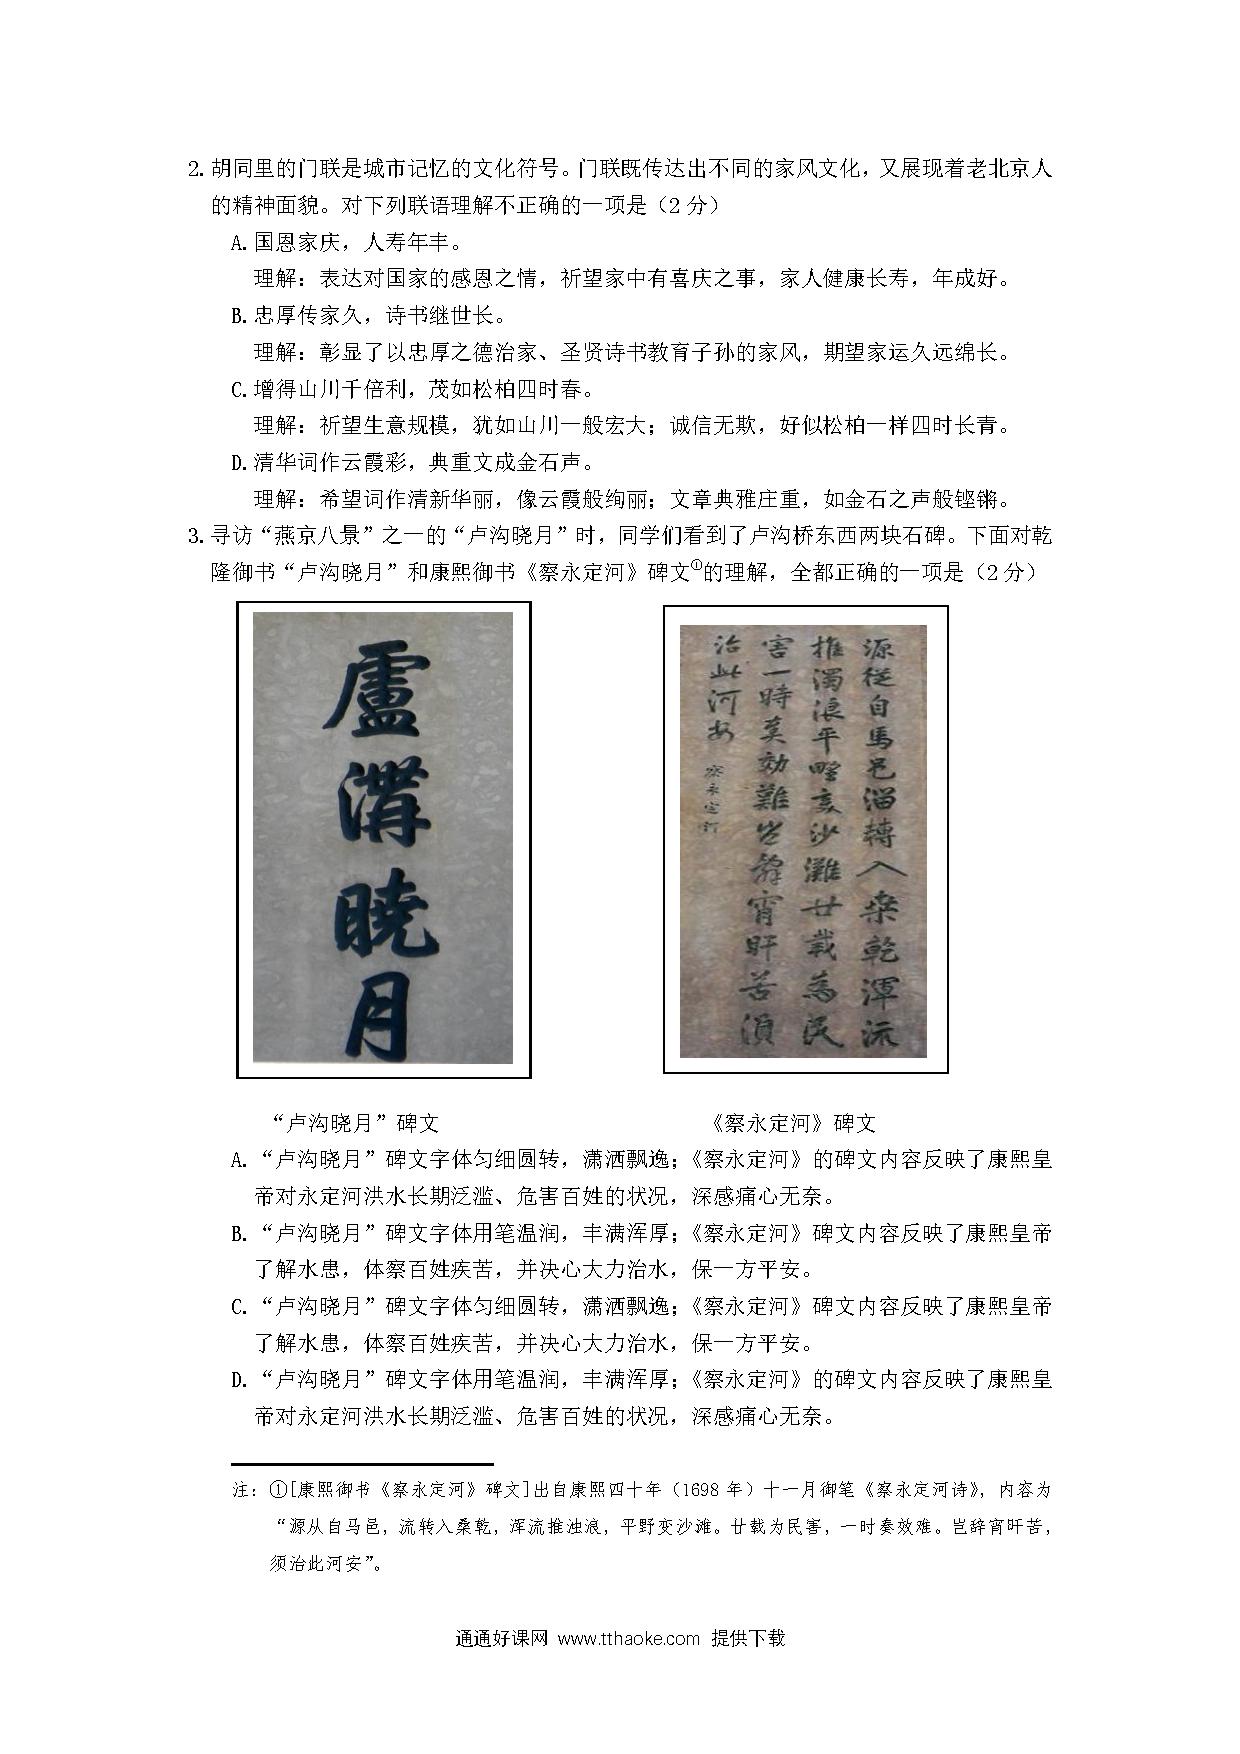 2.胡同里的门联是城市记忆的文化符号。门联既传达出不同的家风文化，又展现着老北京人
的精神面貌。对下列联语理解不正确的一项是（2分）
A.国恩家庆，人寿年丰。
理解：表达对国家的感恩之情，祈望家中有喜庆之事，家人健康长寿，年成好。
B.忠厚传家久，诗书继世长。
理解：彰显了以忠厚之德治家、圣贤诗书教育子孙的家风，期望家运久远绵长。
C.增得山川千倍利，茂如松柏四时春。
理解：祈望生意规模，犹如山川一般宏大；诚信无欺，好似松柏一样四时长青。
D.清华词作云霞彩，典重文成金石声。
理解：希望词作清新华丽，像云霞般绚丽；文章典雅庄重，如金石之声般铿锵。
3.寻访“燕京八景”之一的“卢沟晓月”时，同学们看到了卢沟桥东西两块石碑。下面对乾
隆御书“卢沟晓月”和康熙御书《察永定河》碑文①的理解，全都正确的一项是（2分）
盧溝曉月
源從自馬邑溜轉入桑乾渾流
推濁浪平野变沙灘廿載為民
害一時奏効難豈辭宵旰苦須
治此河安 察永定河
“卢沟晓月”碑文
《察永定河》碑文
A.“卢沟晓月”碑文字体匀细圆转，潇洒飘逸；《察永定河》的碑文内容反映了康熙皇
帝对永定河洪水长期泛滥、危害百姓的状况，深感痛心无奈。
B.“卢沟晓月”碑文字体用笔温润，丰满浑厚；《察永定河》碑文内容反映了康熙皇帝
了解水患，体察百姓疾苦，并决心大力治水，保一方平安。
C.“卢沟晓月”碑文字体匀细圆转，潇洒飘逸；《察永定河》碑文内容反映了康熙皇帝
了解水患，体察百姓疾苦，并决心大力治水，保一方平安。
D.“卢沟晓月”碑文字体用笔温润，丰满浑厚；《察永定河》的碑文内容反映了康熙皇
帝对永定河洪水长期泛滥、危害百姓的状况，深感痛心无奈。
注：①[康熙御书《察永定河》碑文]出自康熙四十年（1698年）十一月御笔《察永定河诗》，内容为
“源从自马邑，流转入桑乾，浑流推浊浪，平野变沙滩。廿载为民害，一时奏效难。岂辞宵旰苦，
须治此河安”。
通通好课网 www.tthaoke.com 提供下载